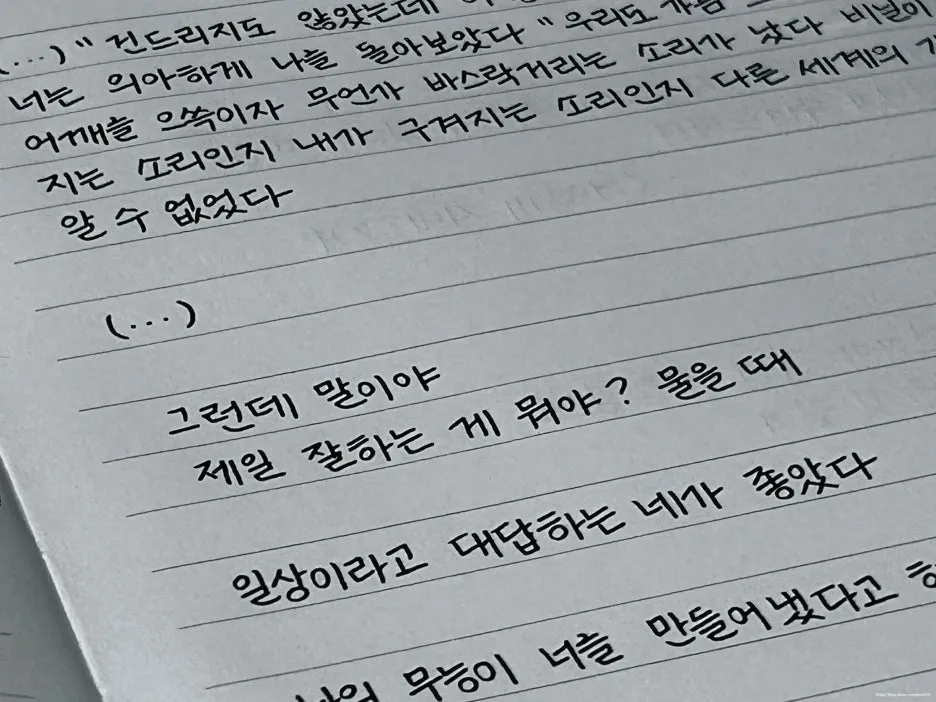 (...) " 건드리지도 않았는데
너는 의아하게 나를 돌아보았다 " 우리도 가끔
어깨를 으쓱이자 무언가 바스락거리는 소리가 났다 비닐이
지는 소리인지 내가 구겨지는 소리인지 다른 세계의
알 수 없었다
(...)
그런데 말이야
제일 잘하는 게 뭐야? 물을 때
일상이라고 대답하는 네가 좋았다
무능이 너를 만들어냈다고